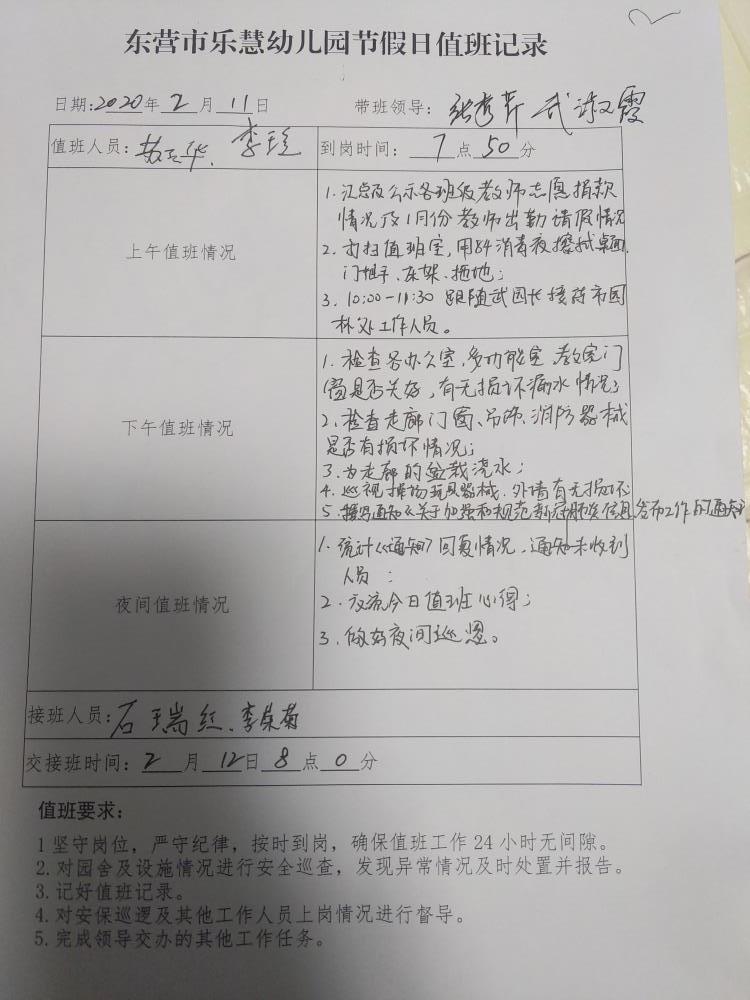 东营市乐慧幼儿园节假日值班记录
日期:2020年2月11日 带班领导: 武淑霞
值班人员: 李珍 到岗时间: 7点50分
上午值班情况
1.汇总及公示各班级教师志愿捐款
情况及1月份教师出勤请假情况
2.打扫值班室,用84消毒液擦拭桌面、
门把手、床架、拖地;
3. 10:00-11:30 跟随武园长接待市园
林处工作人员。
下午值班情况
1.检查各办公室,多功能室,教室门
窗是否关好,有无损坏漏水情况;
2.检查走廊门窗、吊饰、消防器械
是否有损坏情况;
3.为走廊的盆栽浇水;
4.巡视操场玩具器械、外墙有无损坏
5.通知《关于加强和规范新冠肺炎信息发布工作的通知》
夜间值班情况
1.统计《通知》回复情况,通知未收到
人员;
2.交流今日值班心得;
3.做好夜间巡逻。
接班人员:石瑞红、李荣菊
交接班时间:2月12日8点0分
值班要求:
1 坚守岗位,严守纪律,按时到岗,确保值班工作 24 小时无间隙。
2. 对园舍及设施情况进行安全巡查,发现异常情况及时处置并报告。
3. 记好值班记录。
4. 对安保巡逻及其他工作人员上岗情况进行督导。
5. 完成领导交办的其他工作任务。